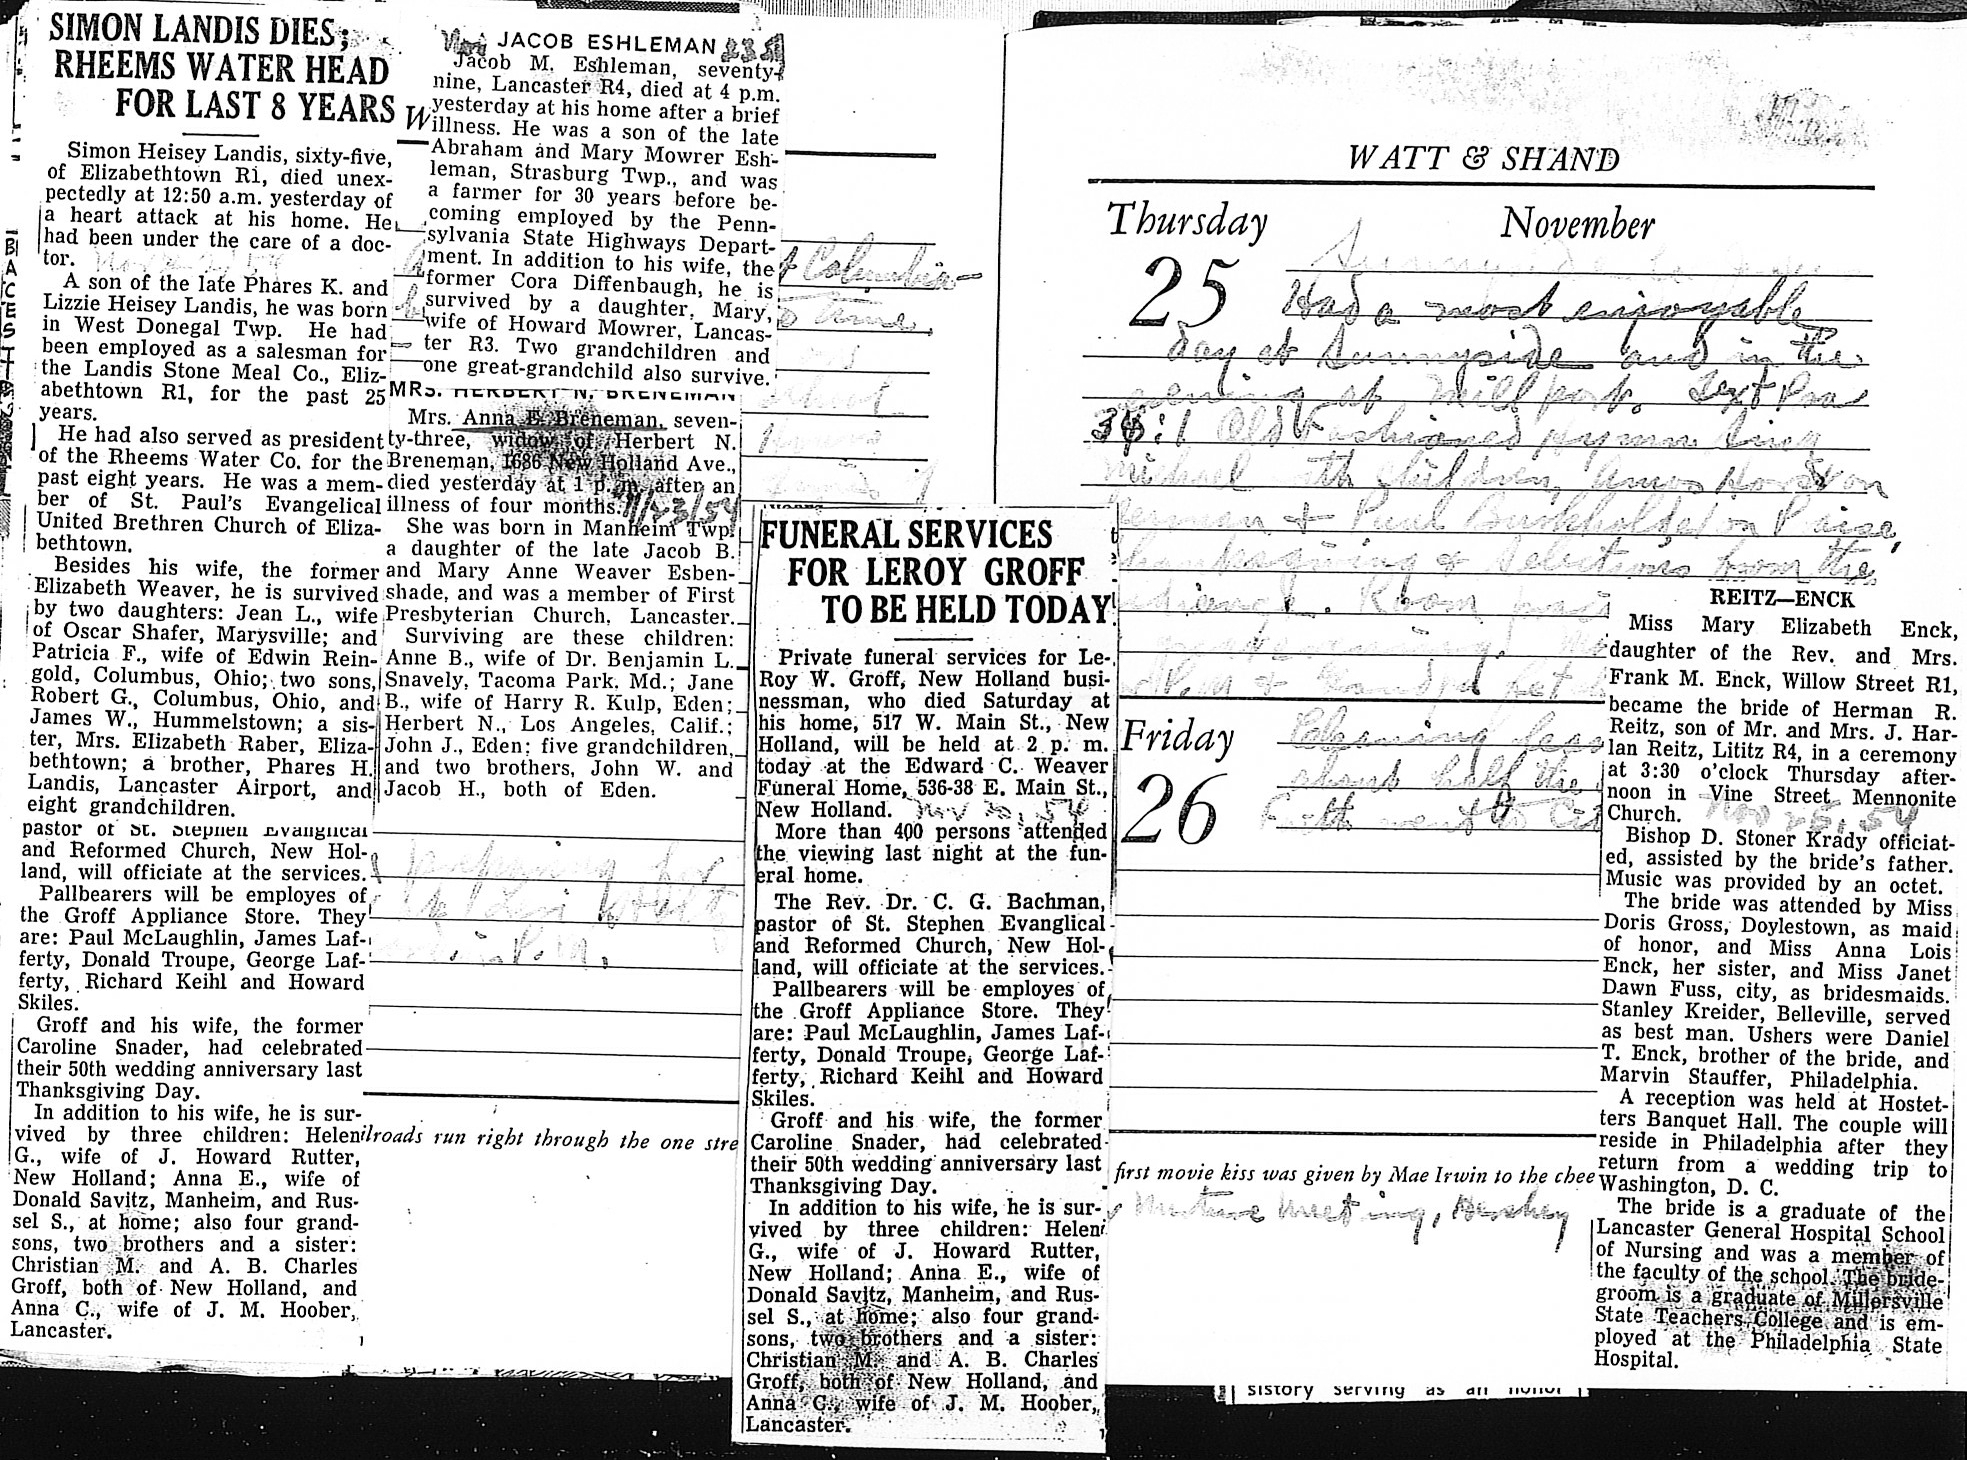 SIMON LANDIS DIES;
RHEEMS WATER HEAD
FOR LAST 8 YEARS
Simon Heisey Landis, sixty-five,
of Elizabethtown R1, died unex-
pectedly at 12:50 a.m. yesterday of
a heart attack at his home. He
had been under the care of a doc-
tor.
A son of the late Phares K. and
Lizzie Heisey Landis, he was born
in West Donegal Twp. He had
been employed as a salesman for
the Landis Stone Meal Co., Eliz-
abethtown R1, for the past 25
years.
He had also served as president
of the Rheems Water Co. for the
past eight years. He was a mem-
ber of St. Paul's Evangelical
United Brethren Church of Eliza-
bethtown.
Besides his wife, the former
Elizabeth Weaver, he is survived
by two daughters: Jean L., wife
of Oscar Shafer, Marysville; and
Patricia F., wife of Edwin Rein-
gold, Columbus, Ohio; two sons,
Robert G., Columbus, Ohio, and
James W., Hummelstown; a sis-
ter, Mrs. Elizabeth Raber, Eliza-
bethtown; a brother, Phares H.
Landis, Lancaster Airport, and
eight grandchildren.
pastor of St. Stephen Evanglical
and Reformed Church, New Hol-
land, will officiate at the services.
Pallbearers will be employes of
the Groff Appliance Store. They
are: Paul McLaughlin, James Laf-
ferty, Donald Troupe, George Laf-
ferty, Richard Keihl and Howard
Skiles.
Groff and his wife, the former
Caroline Snader, had celebrated
their 50th wedding anniversary last
Thanksgiving Day.
In addition to his wife, he is sur-
vived by three children: Helen
G., wife of J. Howard Rutter,
New Holland; Anna E., wife of
Donald Savitz, Manheim, and Rus-
sel S., at home; also four grand-
sons, two brothers and a sister:
Christian M. and A. B. Charles
Groff, both of New Holland, and
Anna C., wife of J. M. Hoober,
Lancaster.
Nov JACOB ESHLEMAN
Jacob M. Eshleman, seventy-
nine, Lancaster R4, died at 4 p.m.
yesterday at his home after a brief
illness. He was a son of the late
Abraham and Mary Mowrer Esh-
leman, Strasburg Twp., and was
a farmer for 30 years before be-
coming employed by the Penn-
sylvania State Highways Depart-
ment. In addition to his wife, the
former Cora Diffenbaugh, he is
survived by a daughter, Mary,
wife of Howard Mowrer, Lancas-
ter R3. Two grandchildren and
one great-grandchild also survive.
MRS. HERBERT N. BRENEMAN
Mrs. Anna E. Breneman, seven-
ty-three, widow of Herbert N.
Breneman, 1686 New Holland Ave.,
died yesterday at 1 p. m. after an
illness of four months. 11/23/54
She was born in Manheim Twp.
a daughter of the late Jacob B.
and Mary Anne Weaver Esben-
shade, and was a member of First
Presbyterian Church, Lancaster.
Surviving are these children:
Anne B., wife of Dr. Benjamin L.
Snavely, Tacoma Park, Md.; Jane
B., wife of Harry R. Kulp, Eden;
Herbert N., Los Angeles, Calif.;
John J., Eden; five grandchildren,
and two brothers, John W. and
Jacob H., both of Eden.
Columbia
preparing for
ilroads run right through the one stre
FUNERAL SERVICES
FOR LEROY GROFF
TO BE HELD TODAY
Private funeral services for Le-
Roy W. Groff, New Holland busi-
nessman, who died Saturday at
his home, 517 W. Main St., New
Holland, will be held at 2 p. m.
today at the Edward C. Weaver
Funeral Home, 536-38 E. Main St.,
New Holland.
More than 400 persons attended
the viewing last night at the fun-
eral home.
The Rev. Dr. C. G. Bachman,
pastor of St. Stephen Evanglical
and Reformed Church, New Hol-
land, will officiate at the services.
Pallbearers will be employes of
the Groff Appliance Store. They
are: Paul McLaughlin, James Laf-
ferty, Donald Troupe, George Laf-
ferty, Richard Keihl and Howard
Skiles.
Groff and his wife, the former
Caroline Snader, had celebrated
their 50th wedding anniversary last
Thanksgiving Day.
In addition to his wife, he is sur-
vived by three children: Helen
G., wife of J. Howard Rutter,
New Holland; Anna E., wife of
Donald Savitz, Manheim, and Rus-
sel S., at home; also four grand-
sons, two brothers and a sister:
Christian M. and A. B. Charles
Groff, both of New Holland, and
Anna C., wife of J. M. Hoober,
Lancaster.
WATT & SHAND
Thursday November
25
Had a most enjoyable
day at Sunnyside and in the
evening at Millport. Text Psa
34:1 Old Fashioned hymn sing
with children, Amos Horst on
+ Paul Burkholder on Praise,
Thanksgiving & Selections from the
audience. Room
Friday
26
Cleaning
about half the
Faith went to
first movie kiss was given by Mae Irwin to the chee
meeting, Hershey
REITZ—ENCK
Miss Mary Elizabeth Enck,
daughter of the Rev. and Mrs.
Frank M. Enck, Willow Street R1,
became the bride of Herman R.
Reitz, son of Mr. and Mrs. J. Har-
lan Reitz, Lititz R4, in a ceremony
at 3:30 o'clock Thursday after-
noon in Vine Street Mennonite
Church. Nov 25, 54
Bishop D. Stoner Krady officiat-
ed, assisted by the bride's father.
Music was provided by an octet.
The bride was attended by Miss
Doris Gross, Doylestown, as maid
of honor, and Miss Anna Lois
Enck, her sister, and Miss Janet
Dawn Fuss, city, as bridesmaids.
Stanley Kreider, Belleville, served
as best man. Ushers were Daniel
T. Enck, brother of the bride, and
Marvin Stauffer, Philadelphia.
A reception was held at Hostet-
ters Banquet Hall. The couple will
reside in Philadelphia after they
return from a wedding trip to
Washington, D. C.
The bride is a graduate of the
Lancaster General Hospital School
of Nursing and was a member of
the faculty of the school. The bride-
groom is a graduate of Millersville
State Teachers College and is em-
ployed at the Philadelphia State
Hospital.
sistory serving as an honor